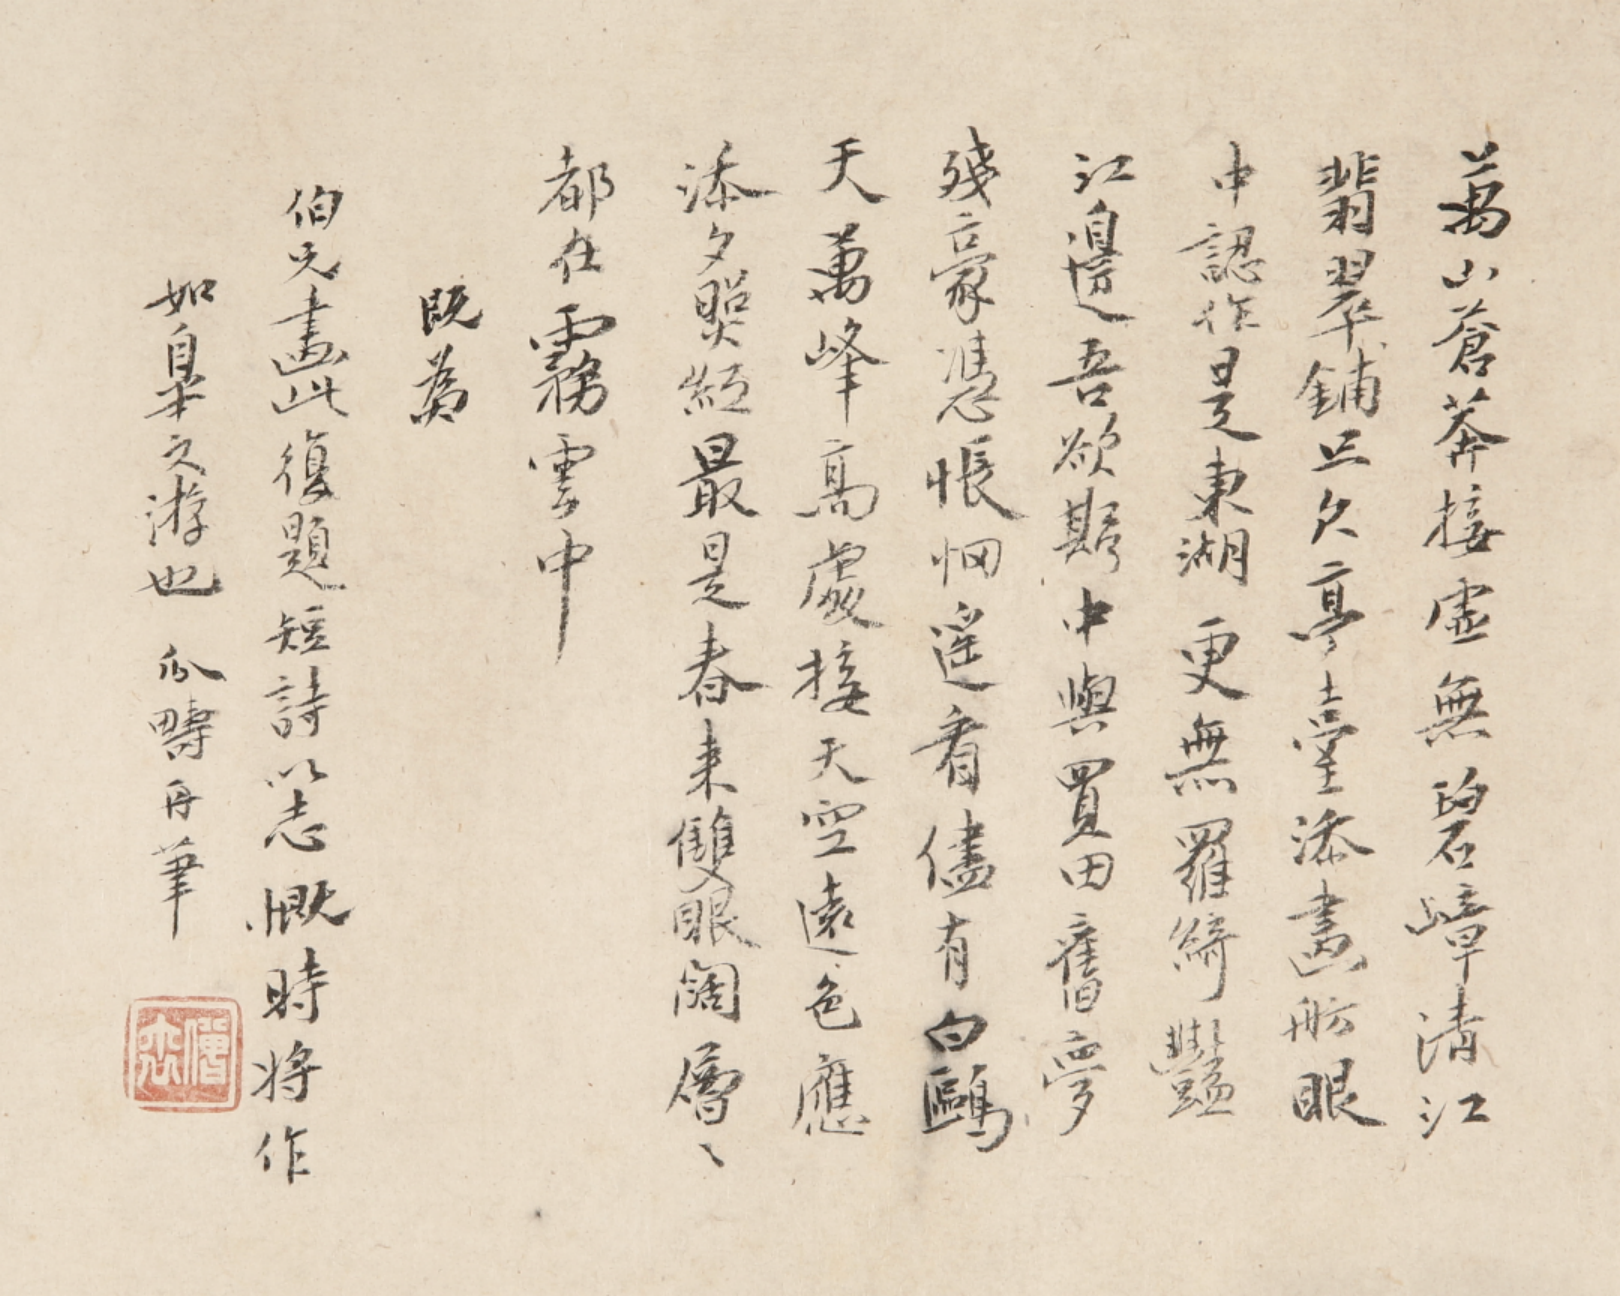 萬山蒼莽接虛無碧嶂清江
翡翠鋪只欠亭臺添畫舫眼
中認作是東湖更無羅綺豔
江邊吾欲斯中與買田舊夢
殘豪憑悵惘遥看儘有白鷗
天萬峰高處接天空遠色應
添夕照紅最是春來雙眼闊層〻
都在霧雲中
既為
伯元畫此復題短詩以志慨時將作
如皋之游也 瓜疇再筆
僧弥